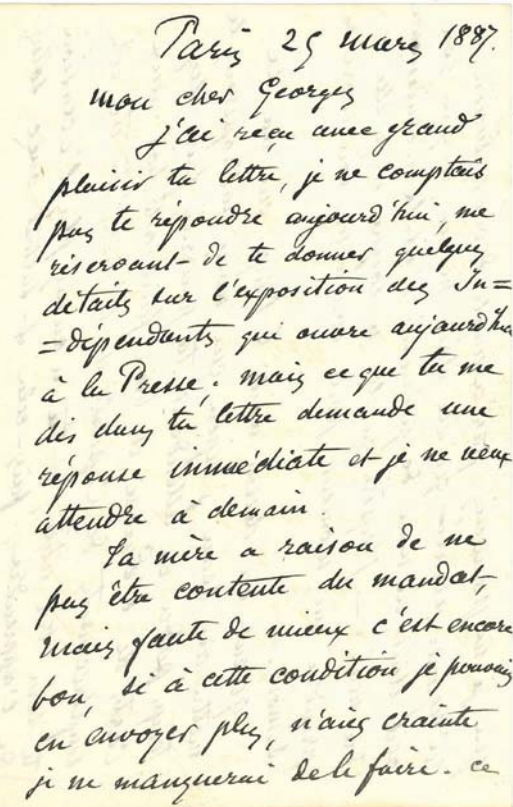 Paris 25 mars 1887.
mon cher Georges
j'ai reçu avec grand
plaisir ta lettre, je ne comptais
pas te répondre aujourd'hui, me
réservant de te donner quelques
détails sur l'exposition des In=
=dépendants qui ouvre aujourd'hui
à la Presse; mais ce que tu me
dis dans ta lettre demande une
réponse immédiate et je ne veux
attendre à demain.
Ta mère a raison de ne
pas être contente du mandat,
mais faute de mieux c'est encore
bon, si à cette condition je pouvais
en envoyer plus, n'aies crainte
je ne manquerai de le faire. ce